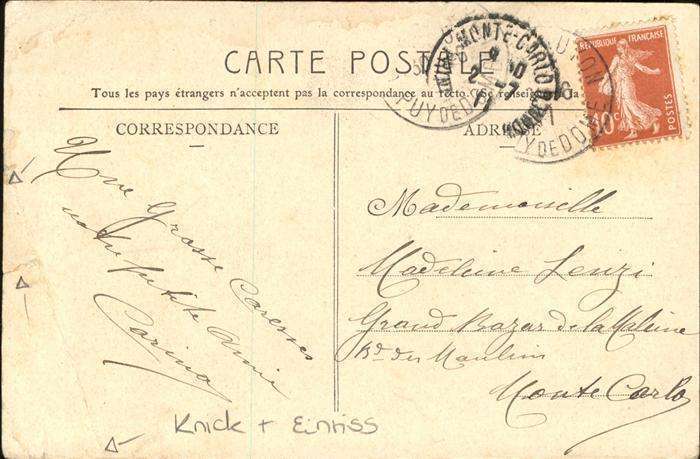 CARTE POSTALE
Tous les pays étrangers n'acceptent pas la correspondance au recto. (Se renseigner à la
CORRESPONDANCE
ADR
Une Grosse Caresse
votre petite amie
Carina
Mademoiselle
Madeleine Lenzi
Grand Bazar de la Maline
Bd du Moulins
Monte Carlo
Knick + Einriss
RÉPUBLIQUE FRANÇAISE
10c
POSTES
MONTE-CARLO
PUY DE DOME
PUY DE DOME